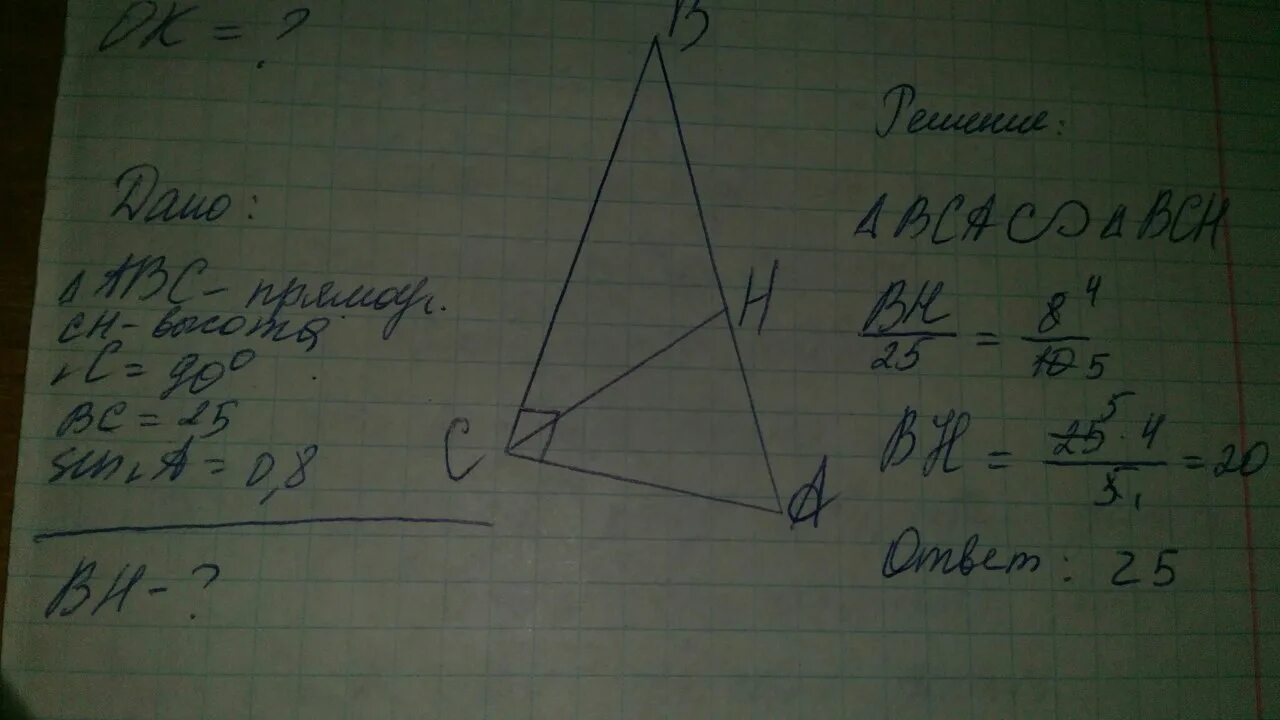 OK = ?
Дано:
Δ ABC - прямоуг.
CH - высота
∠C = 90°
BC = 25
sin∠A = 0,8
BH - ?
B
H
C
A
Решение:
Δ BCA ∽ Δ BCH
BH/25 = 8 4/10 5
BH = 25 5 · 4/5 1 = 20
Ответ: 25